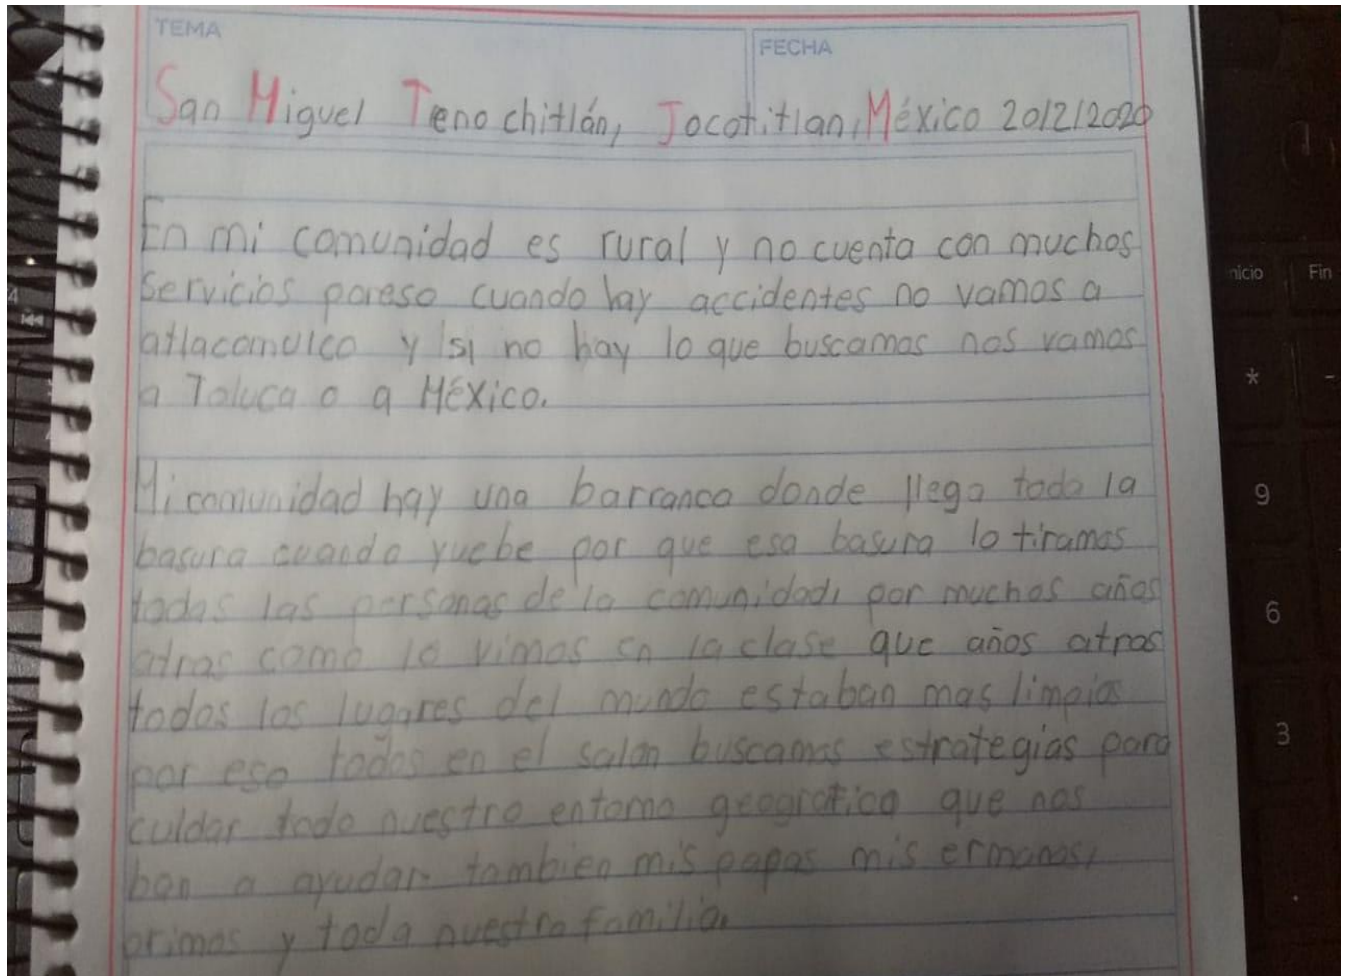 TEMA
FECHA
San Miguel Tenochitlán, Jocotitlan, México 20/2/2020
En mi comunidad es rural y no cuenta con muchos
servicios poreso cuando hay accidentes no vamos a
atlacomulco y si no hay lo que buscamos nos vamos
a Toluca o a México.
Mi comunidad hay una barranca donde llega toda la
basura cuando yuebe por que esa basura lo tiramos
todas las personas de la comunidad, por muchos años
atras como lo vimos en la clase que años atras
todos los lugares del mundo estaban mas limpios
por eso todos en el salon buscamos estrategias para
cuidar todo nuestro entorno geografico que nos
ban a ayudar tambien mis papas mis ermanos,
primos y toda nuestra familia.
nicio
Fin
*
-
9
6
3
4